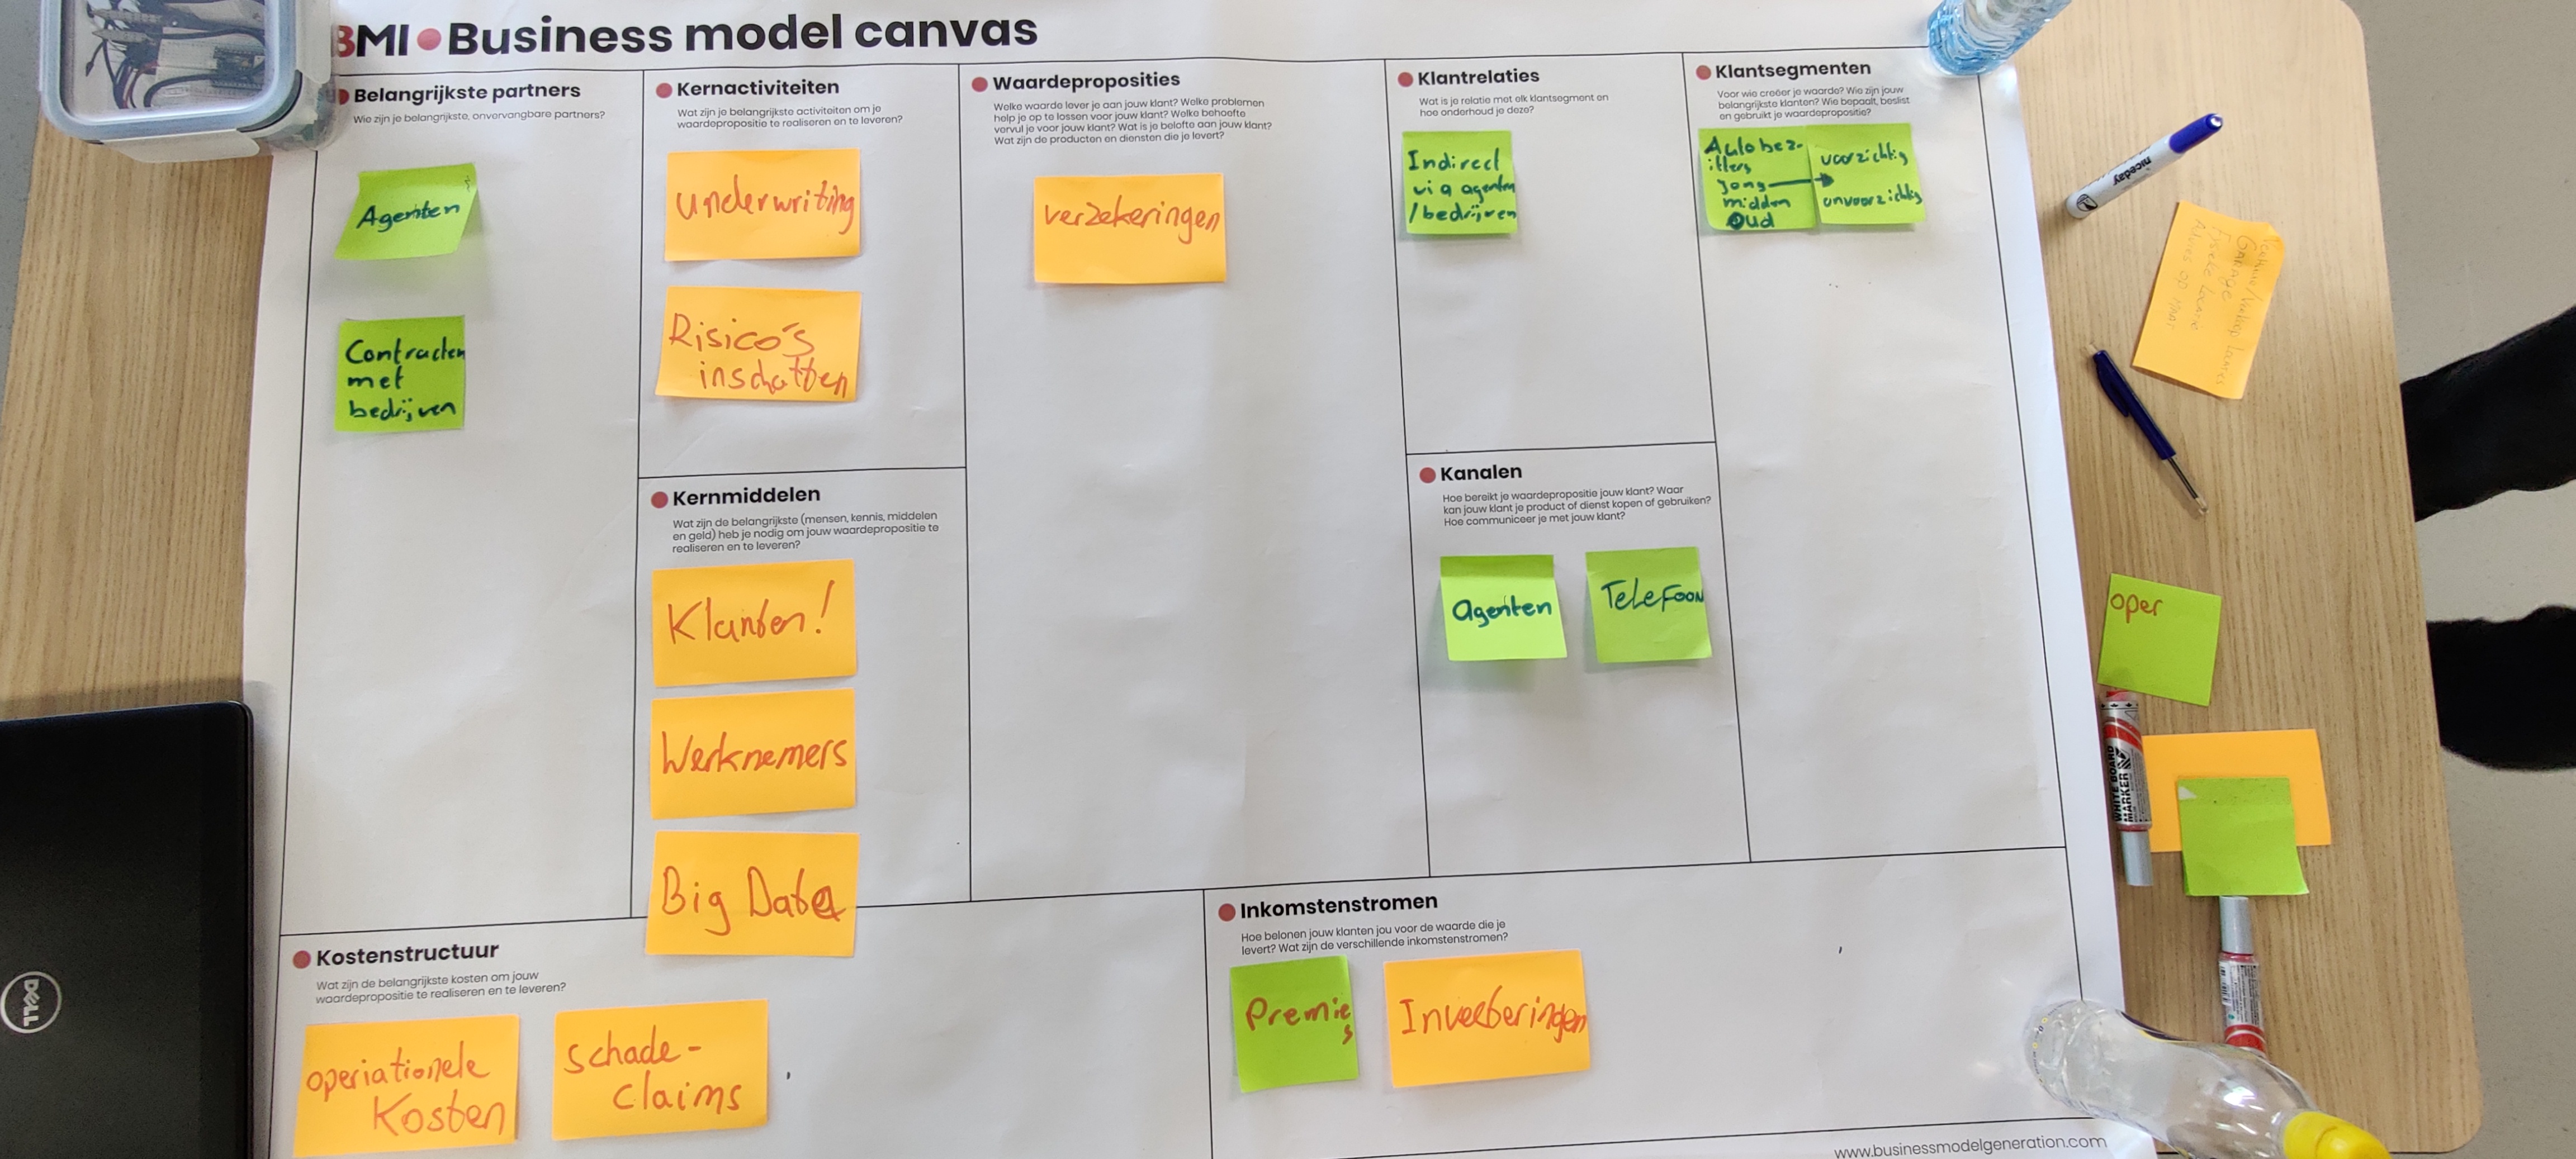 BMI Business model canvas
Belangrijkste partners
Wie zijn je belangrijkste, onvervangbare partners?
Agenten
Contracten
met
bedrijven
Kernactiviteiten
Wat zijn je belangrijkste activiteiten om je
waardepropositie te realiseren en te leveren?
underwriting
Risico's
inschatten
Kernmiddelen
Wat zijn de belangrijkste (mensen, kennis, middelen
en geld) heb je nodig om jouw waardepropositie te
realiseren en te leveren?
Klanten!
Werknemers
Big Data
Waardeproposities
Welke waarde lever je aan jouw klant? Welke problemen
help je op te lossen voor jouw klant? Welke behoefte
vervul je voor jouw klant? Wat is je belofte aan jouw klant?
Wat zijn de producten en diensten die je levert?
verzekeringen
Klantrelaties
Wat is je relatie met elk klantsegment en
hoe onderhoud je deze?
Indirect
via agenten
/bedrijven
Kanalen
Hoe bereikt je waardepropositie jouw klant? Waar
kan jouw klant je product of dienst kopen of gebruiken?
Hoe communiceer je met jouw klant?
agenten
Telefoon
Klantsegmenten
Voor wie creëer je waarde? Wie zijn jouw
belangrijkste klanten? Wie bepaalt, beslist
en gebruikt je waardepropositie?
Autobez-
itters
jong
midden
oud
voorzichtig
onvoorzichtig
Kostenstructuur
Wat zijn de belangrijkste kosten om jouw
waardepropositie te realiseren en te leveren?
operiationele
Kosten
Schade-
claims
Inkomstenstromen
Hoe belonen jouw klanten jou voor de waarde die je
levert? Wat zijn de verschillende inkomstenstromen?
Premie
s
Invesberingen
www.businessmodelgeneration.com
niceday
oper
WHITE BOARD
MARKER
DELL